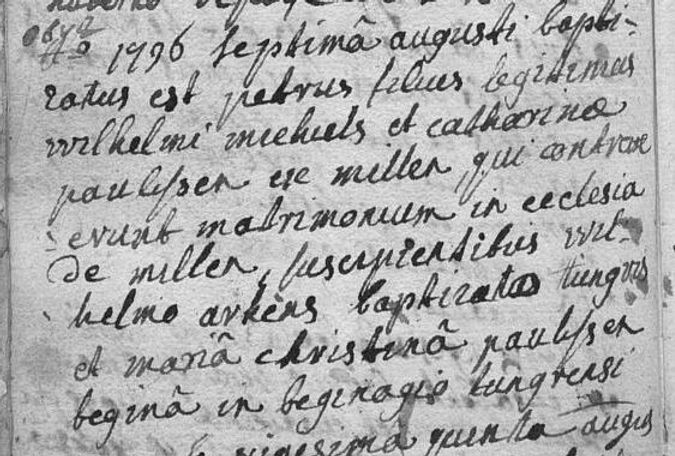 Ao 1796 septimâ augusti bapti-
zatus est petrus filius legitimus
wilhelmi michiels et catharinæ
paulissen ex millen, qui contraxe
erunt matrimonium in ecclesia
de millen, suscipientibus wil-
helmo arkens baptizato tungris
et mariâ christinâ paulissen
beginâ in beginagio tungrensi
vigesima quinta augus